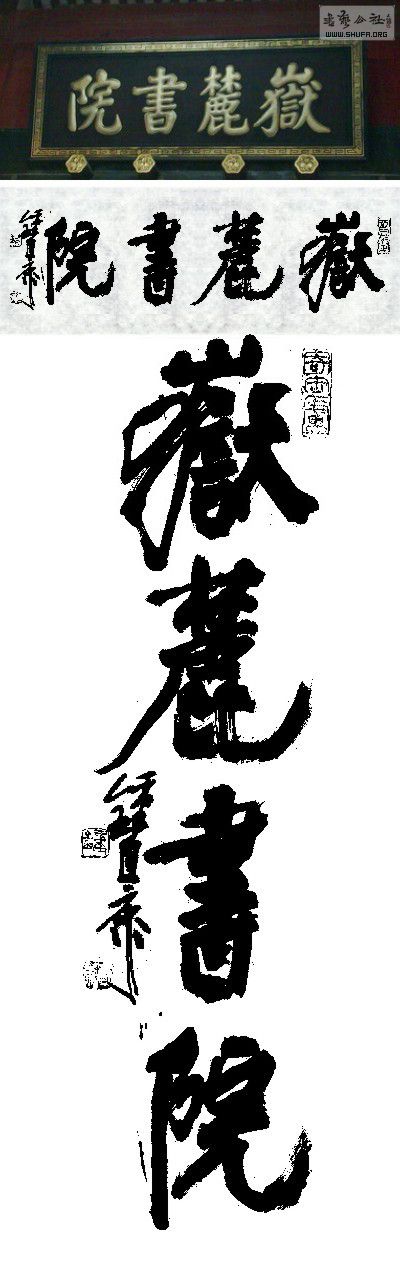 書藝公社
WWW.SHUFA.ORG
嶽麓書院
嶽麓書院
嶽麓書院